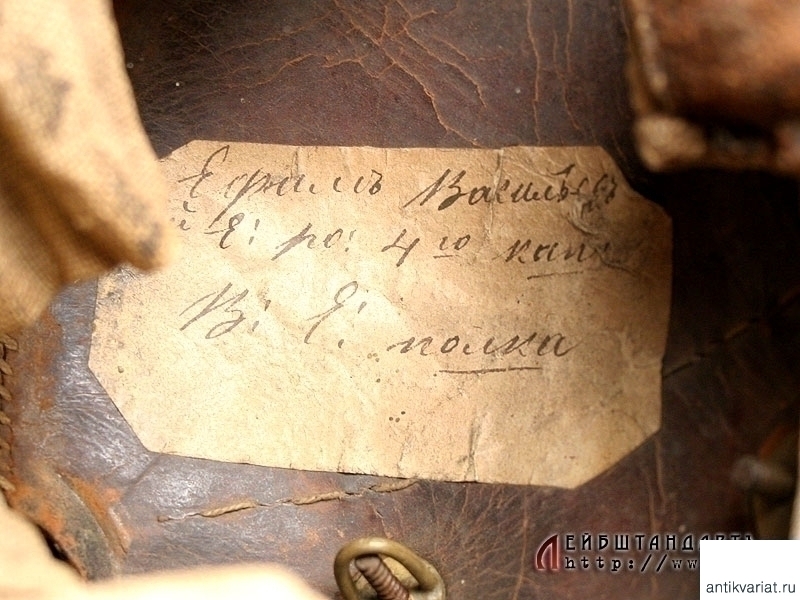 Ефимъ Васильевъ
й Е! ро! 4го кап
В! Е! полка
ЛЕЙБШТАНДАРТЪ
http://www
antikvariat.ru